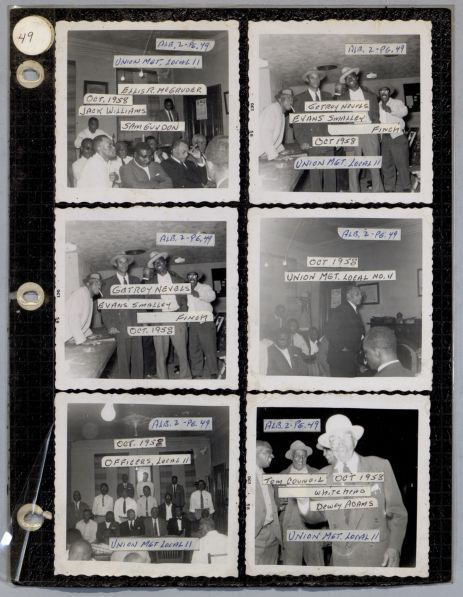 49
ALB. 2-PG. 49
UNION MGT. LOCAL 11
ELLIS R. MCGRUDER
OCT. 1958
JACK WILLIAMS
SAM GUYDON
ALB. 2-PG. 49
GETROY NEVELS
EVANS SMALLEY
FINCH
OCT 1958
UNION MGT. LOCAL 11
ALB. 2-PG. 49
GETROY NEVELS
EVANS SMALLEY
FINCH
OCT. 1958
ALB. 2-PG. 49
OCT 1958
UNION MGT. LOCAL NO. 11
ALB. 2-PG. 49
OCT. 1958
OFFICERS, LOCAL 11
UNION MGT. LOCAL 11
ALB. 2-PG. 49
TOM COUNCIL
OCT 1958
WHITEHEAD
DEWEY ADAMS
UNION MGT. LOCAL 11